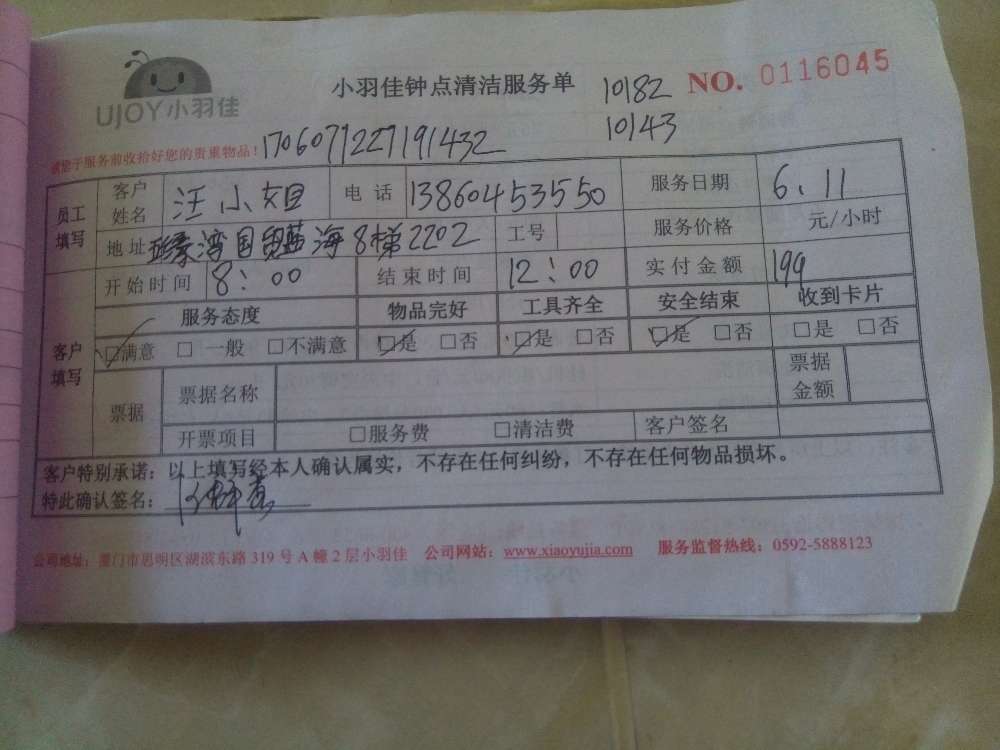 UJOY小羽佳
小羽佳钟点清洁服务单
10182
10143
NO. 0116045
请您于服务前收拾好您的贵重物品！1706071227191432
员工填写 客户姓名 汪小姐 电话 13860453550 服务日期 6.11
地址 湾国贸蓝海8梯2202 工号 服务价格 元/小时
开始时间 8:00 结束时间 12:00 实付金额 199
客户填写 服务态度 物品完好 工具齐全 安全结束 收到卡片
☑满意 □一般 □不满意 ☑是 □否 ☑是 □否 ☑是 □否 □是 □否
票据 票据名称 票据金额
开票项目 □服务费 □清洁费 客户签名
客户特别承诺：以上填写经本人确认属实，不存在任何纠纷，不存在任何物品损坏。
特此确认签名：
公司地址：厦门市思明区湖滨东路 319 号 A 幢 2 层小羽佳 公司网站：www.xiaoyujia.com 服务监督热线：0592-5888123